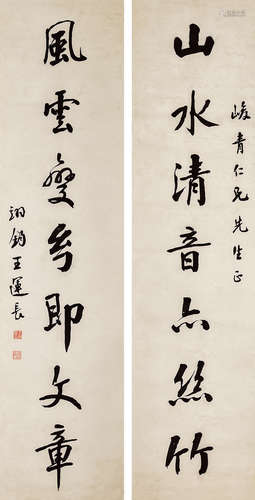 山水清音亦丝竹
峻青仁兄先生正
風雲變幻即文章
王運長